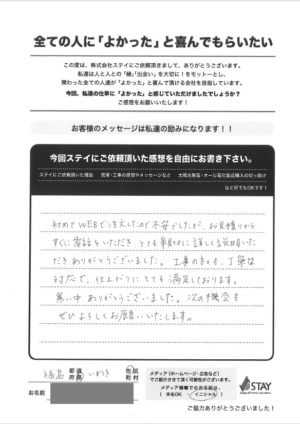 全ての人に「よかった」と喜んでもらいたい
この度は、株式会社ステイにご依頼頂きまして、ありがとうございます。
私達は人と人との「縁」「出会い」を大切に！をモットーとし、
関わった全ての人達が「よかった」と喜んで頂ける会社を目指しています。
今回、私達の仕事に「よかった」と感じていただけましたでしょうか？
ご感想をお願いいたします！
お客様のメッセージは私達の励みになります！！
今回ステイにご依頼頂いた感想を自由にお書き下さい。
ステイにご依頼頂いた理由 営業・工事の感想やメッセージなど 太陽光発電・オール電化製品購入の切っ掛け
など何でもOKです！
初めてWEBで注文したので不安でしたが、お見積りから
すぐに電話をいただき、とても親切に詳しく説明いた
だきありがとうございました。工事の方も、丁寧な
対応で、仕上がりにとても満足しております。
寒い中ありがとうございました。次の機会も
ぜひよろしくお願いいたします。
福島 都道府県 いわき 市区町村
お名前
メディア（ホームページ・広告など）
でご紹介させて頂く可能性がございます。
メディア掲載でのお名前は、
（ 本名OK ・ イニシャル ）
STAY
ご協力ありがとうございました！